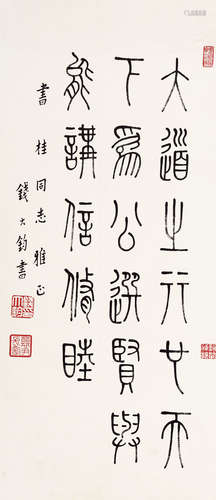 大道之行也天
下爲公選賢與
能講信脩睦
書桂同志雅正
錢大鈞書